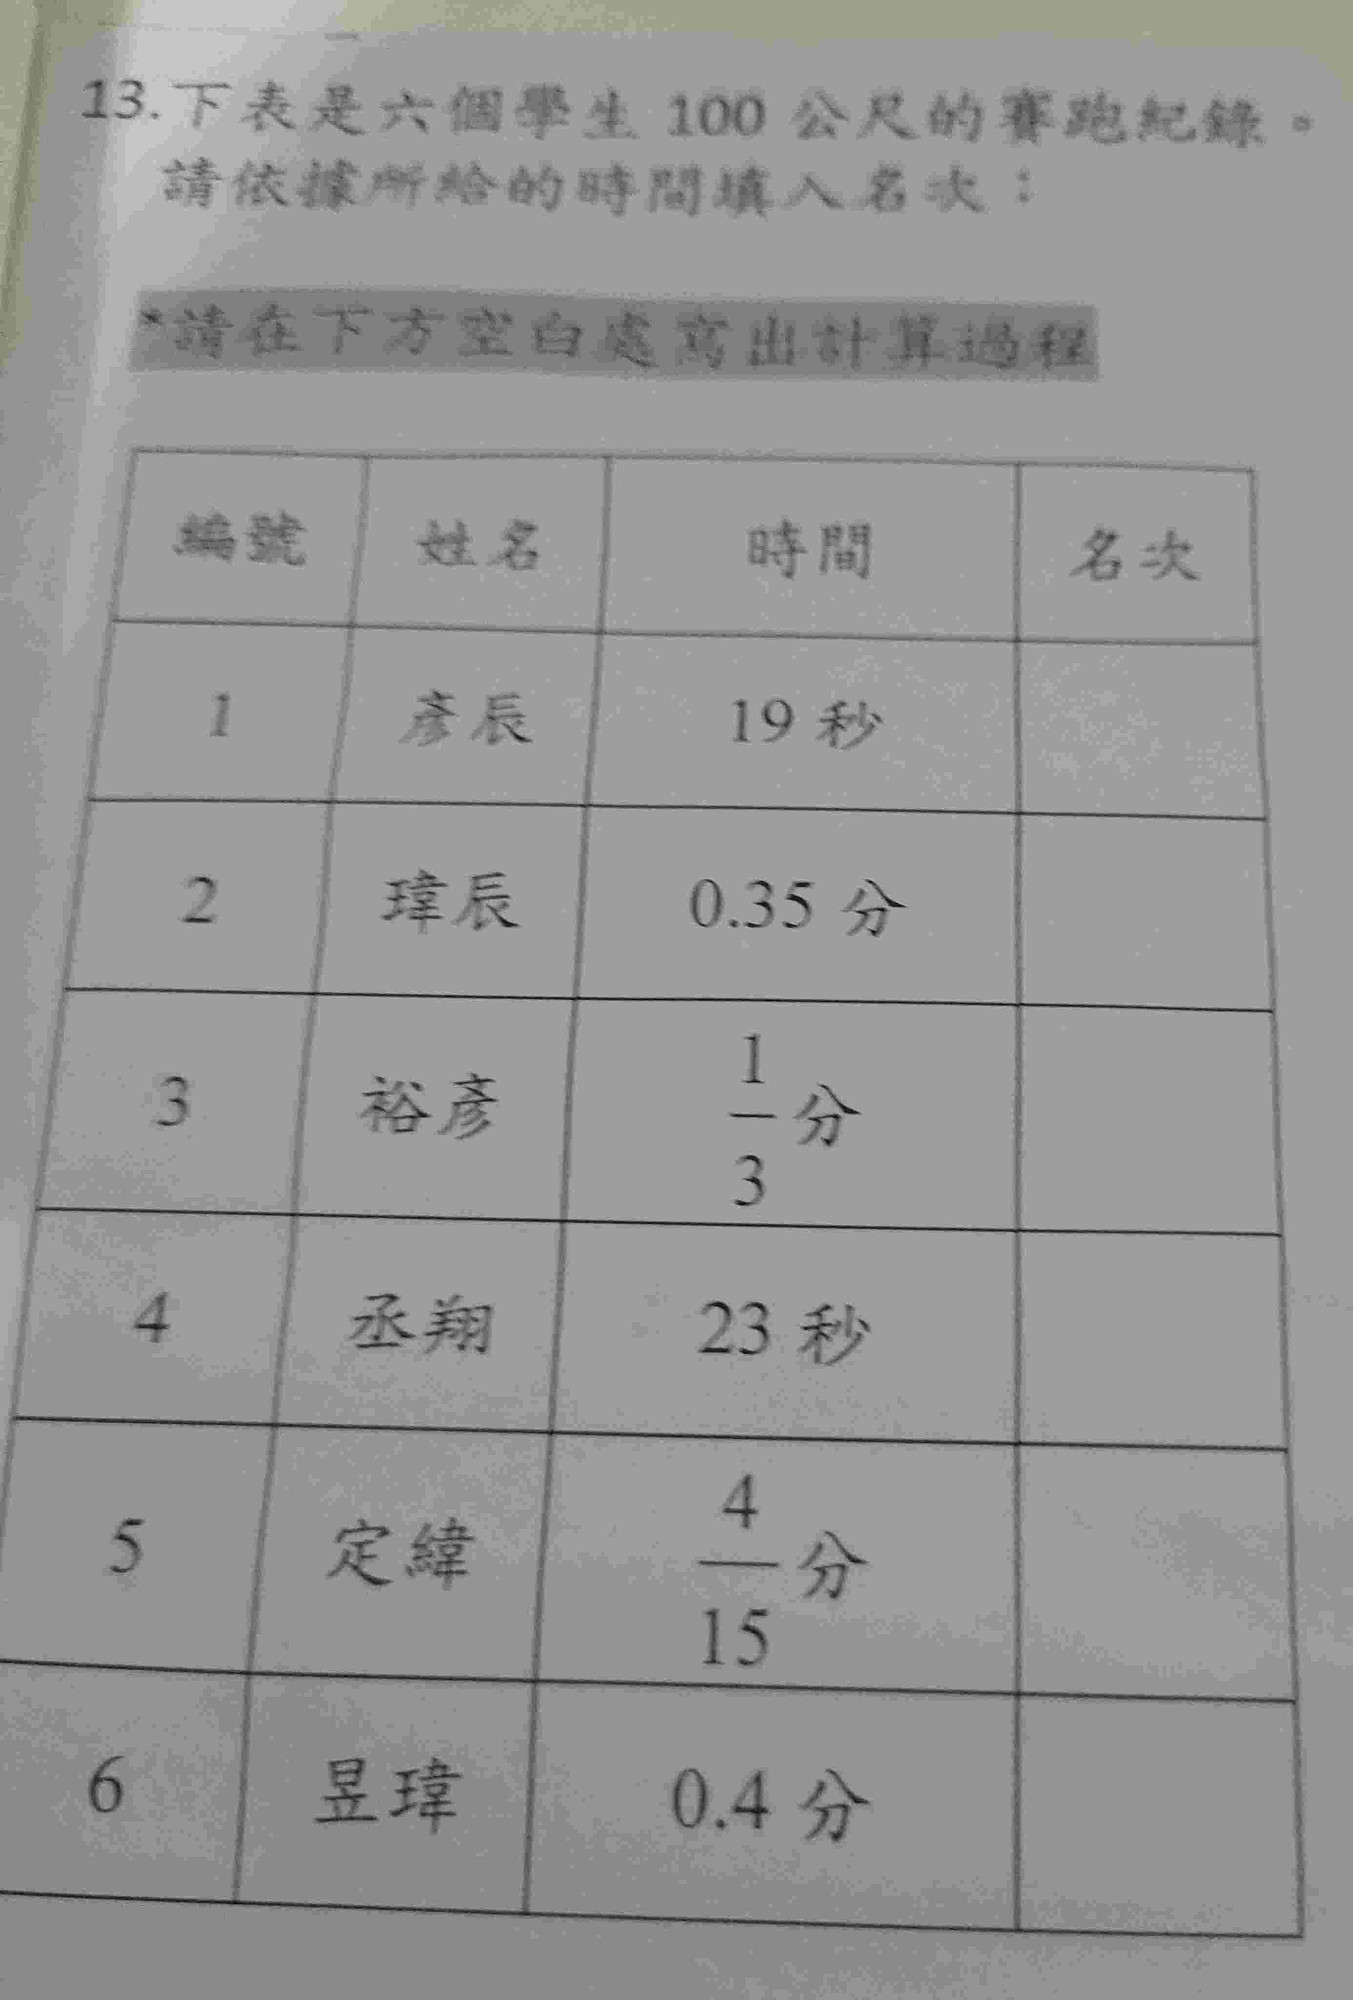 13.下表是六個學生 100 公尺的賽跑紀錄。
請依據所給的時間填入名次：
*請在下方空白處寫出計算過程
編號 姓名 時間 名次
1 彥辰 19 秒
2 瑋辰 0.35 分
3 裕彥 1/3 分
4 丞翔 23 秒
5 定緯 4/15 分
6 昱瑋 0.4 分